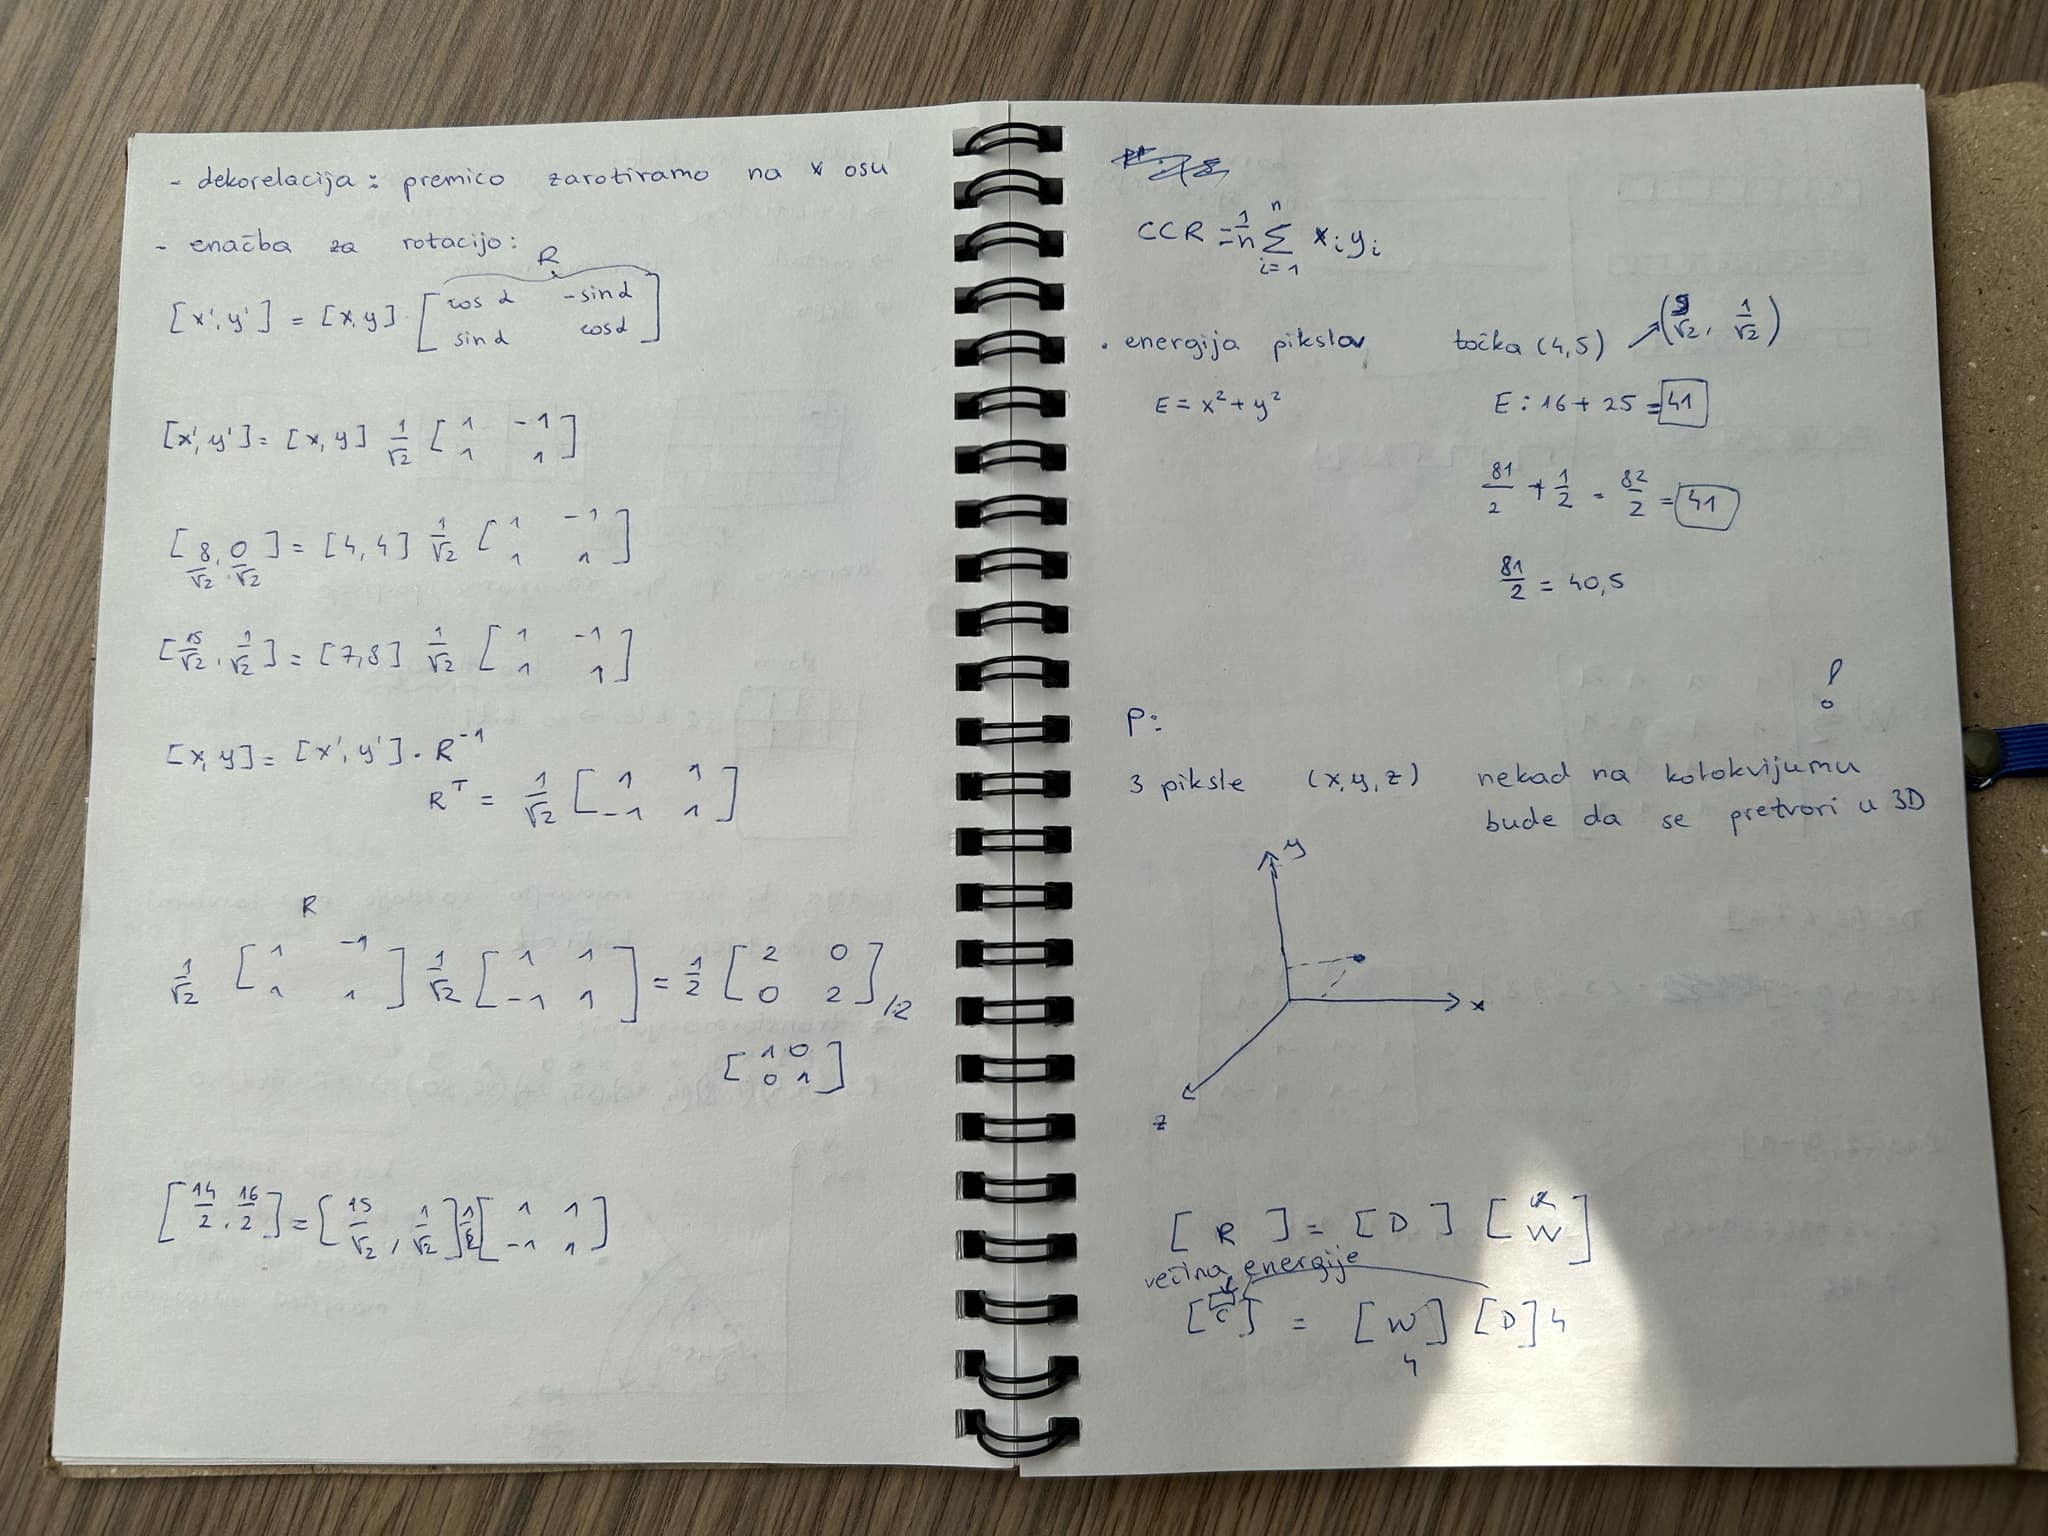 - dekorelacija : premico zarotiramo na x osu
- enačba za rotacijo:
R
[x', y'] = [x,y] . [cos α -sin α
sin α cos α]
[x', y'] = [x, y] 1/√2 [1 -1
1 1]
[8/√2, 0/√2] = [4,4] 1/√2 [1 -1
1 1]
[15/√2, 1/√2] = [7,8] 1/√2 [1 -1
1 1]
[x,y] = [x', y'] . R⁻¹
Rᵀ = 1/√2 [1 1
-1 1]
R
1/√2 [1 -1
1 1] 1/√2 [1 1
-1 1] = 1/2 [2 0
0 2] /:2
[1 0
0 1]
[14/2, 16/2] = [15/√2, 1/√2] 1/√2 [1 1
-1 1]
CCR = 1/n Σ xᵢyᵢ
n
i=1
. energija pikslov točka (4,5) ↗ (9/√2, 1/√2)
E = x² + y² E : 16 + 25 = 41
81/2 + 1/2 = 82/2 = 41
81/2 = 40,5
!
P:
3 piksle (x,y,z) nekad na kolokvijumu
bude da se pretvori u 3D
y
x
z
[R] = [D] [W]
večina energije
[C] = [W] [D] 4
4